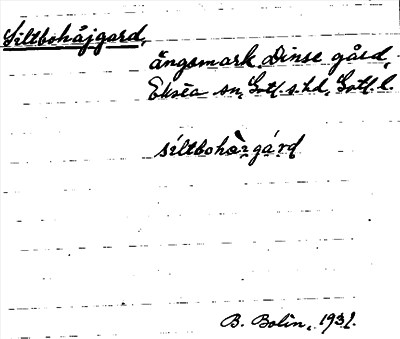 Siltbohåjgard,
ängsmark Dinse gård,
Eksta sn, Gotl. s. hd, Gotl. l.
síltbohàr̨gá́rd
B. Bolin, 1931.